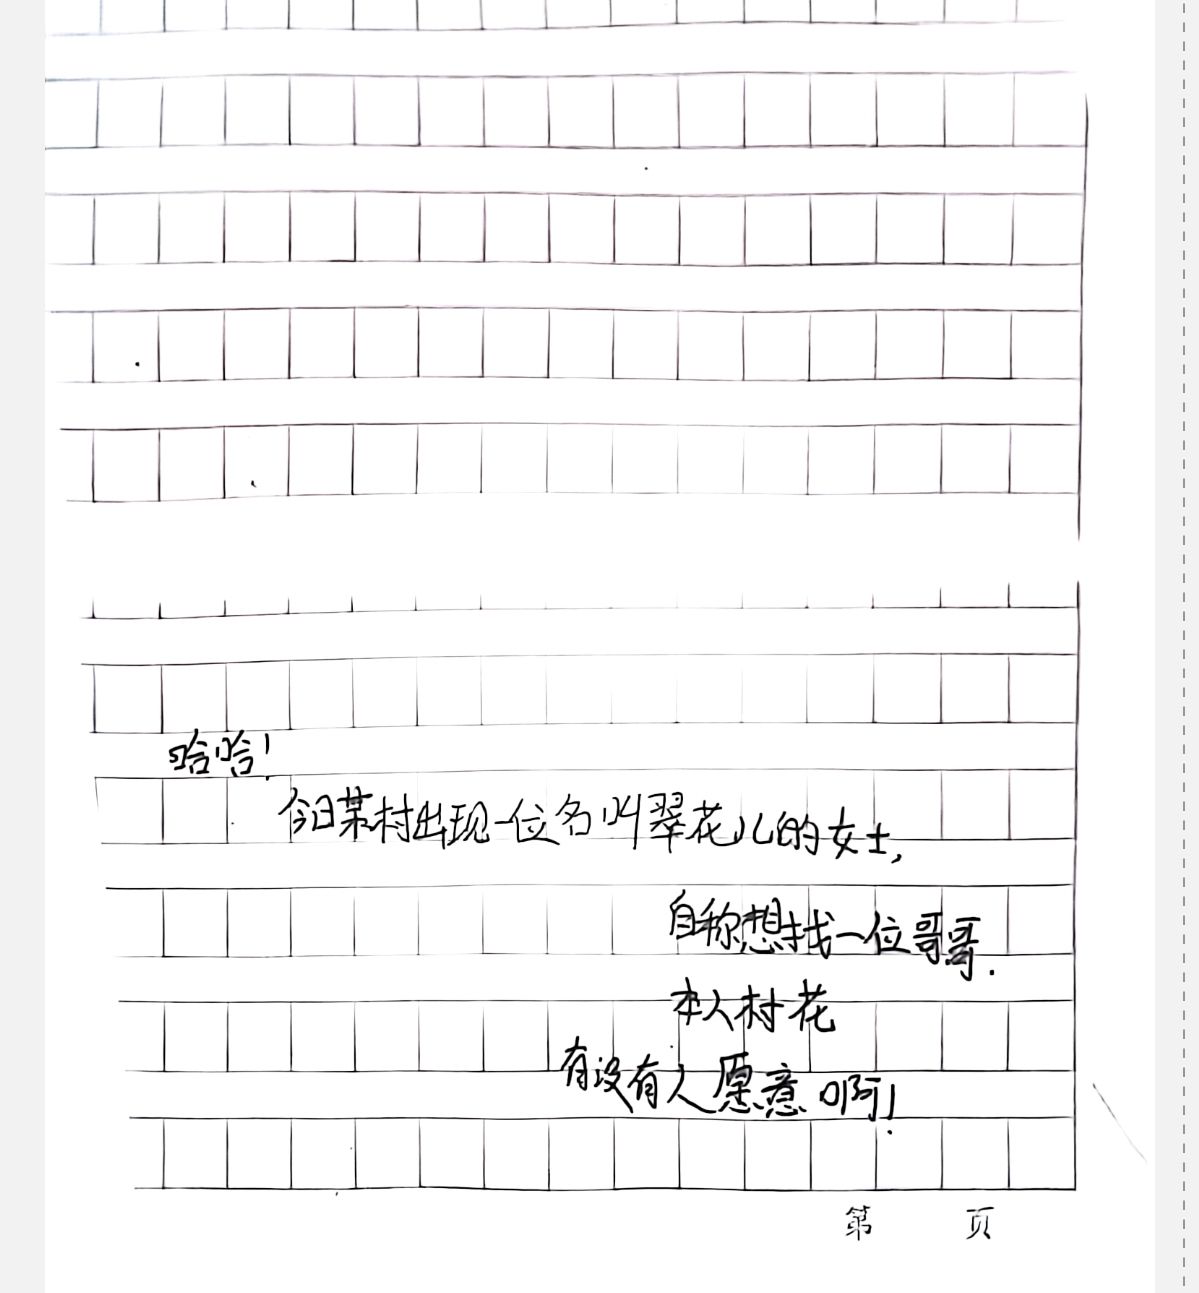 哈哈!
今日某村出现一位名叫翠花儿的女士,
自称想找一位哥哥.
本人村花
有没有人愿意啊!
第 页